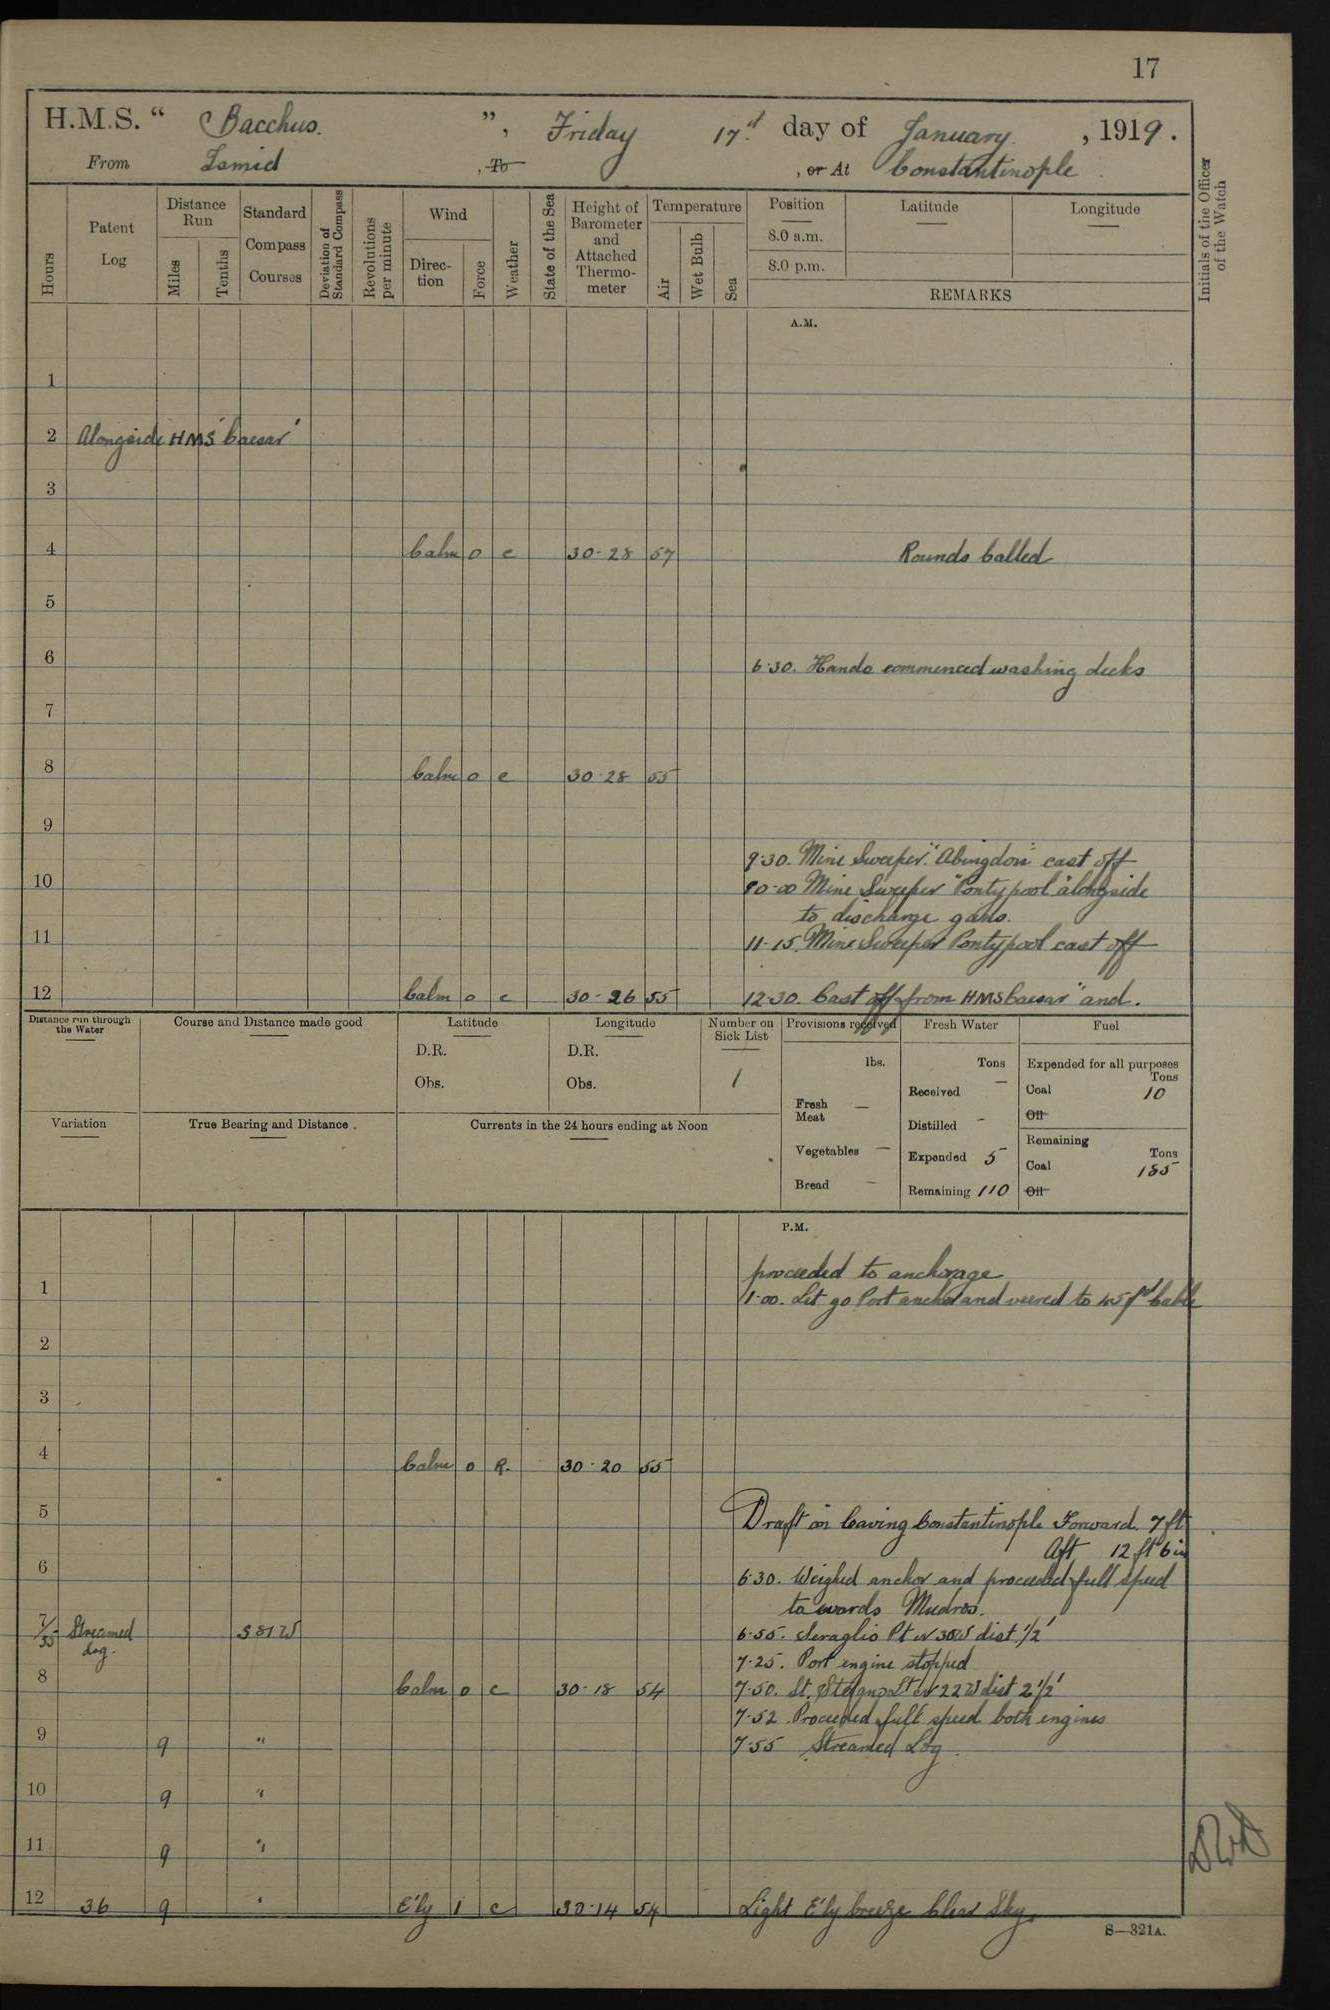 17
H.M.S. “ Bacchus. ”, Friday 17th day of January , 1919.
From Ismid , To , or At Constantinople
Hours
Patent Log
Distance Run
Miles
Tenths
Standard Compass Courses
Deviation of Standard Compass
Revolutions per minute
Wind
Direc-tion
Force
Weather
State of the Sea
Height of Barometer and Attached Thermo-meter
Temperature
Air
Wet Bulb
Sea
Position
8.0 a.m.
8.0 p.m.
Latitude
Longitude
REMARKS
Initials of the Officer of the Watch
A.M.
1
2 Alongside HMS 'Caesar'
3
4 Calm 0 c 30·28 57 Rounds Called
5
6 6·30. Hands commenced washing decks
7
8 Calm 0 c 30·28 55
9
9·30. Mine Sweeper "Abingdon" cast off
10 10·00 Mine Sweeper "Pontypool" alongside
to discharge
11 11·15. Mine Sweeper Pontypool cast off
12 Calm 0 c 30·26 55 12·30. Cast off from HMS Caesar" and.
Distance run through the Water
Course and Distance made good
Latitude
D.R.
Obs.
Longitude
D.R.
Obs.
Number on Sick List
1
Provisions received
lbs.
Fresh Meat —
Vegetables —
Bread —
Fresh Water
Tons
Received —
Distilled -
Expended 5
Remaining 110
Fuel
Expended for all purposes
Tons
Coal 10
Oil
Remaining
Tons
Coal 185
Oil
Variation
True Bearing and Distance .
Currents in the 24 hours ending at Noon
P.M.
proceeded to anchorage
1 1·00. Let go Port anchor and veered to 45 fm Cable
2
3
4 Calm 0 R. 30·20 55
5 Draft on leaving Constantinople Forward. 7 ft
Aft 12 ft 6 in
6 6·30. Weighed anchor and proceeded full speed
towards Mudros.
7/55 Streamed Log. S 81 W 6·55. Seraglio Pt N 30 W dist. 1/2'
7·25. Port engine stopped
8 Calm 0 c 30·18 54 7·50. St. Stefano Lt N 22 W dist 2 1/2'
7·52. Proceeded full speed both engines
9 9 " 7·55 Streamed Log.
10 9 "
11 9 "
12 36 9 " E'ly 1 c 30·14 54 Light E'ly breeze Clear Sky.
S—321A.